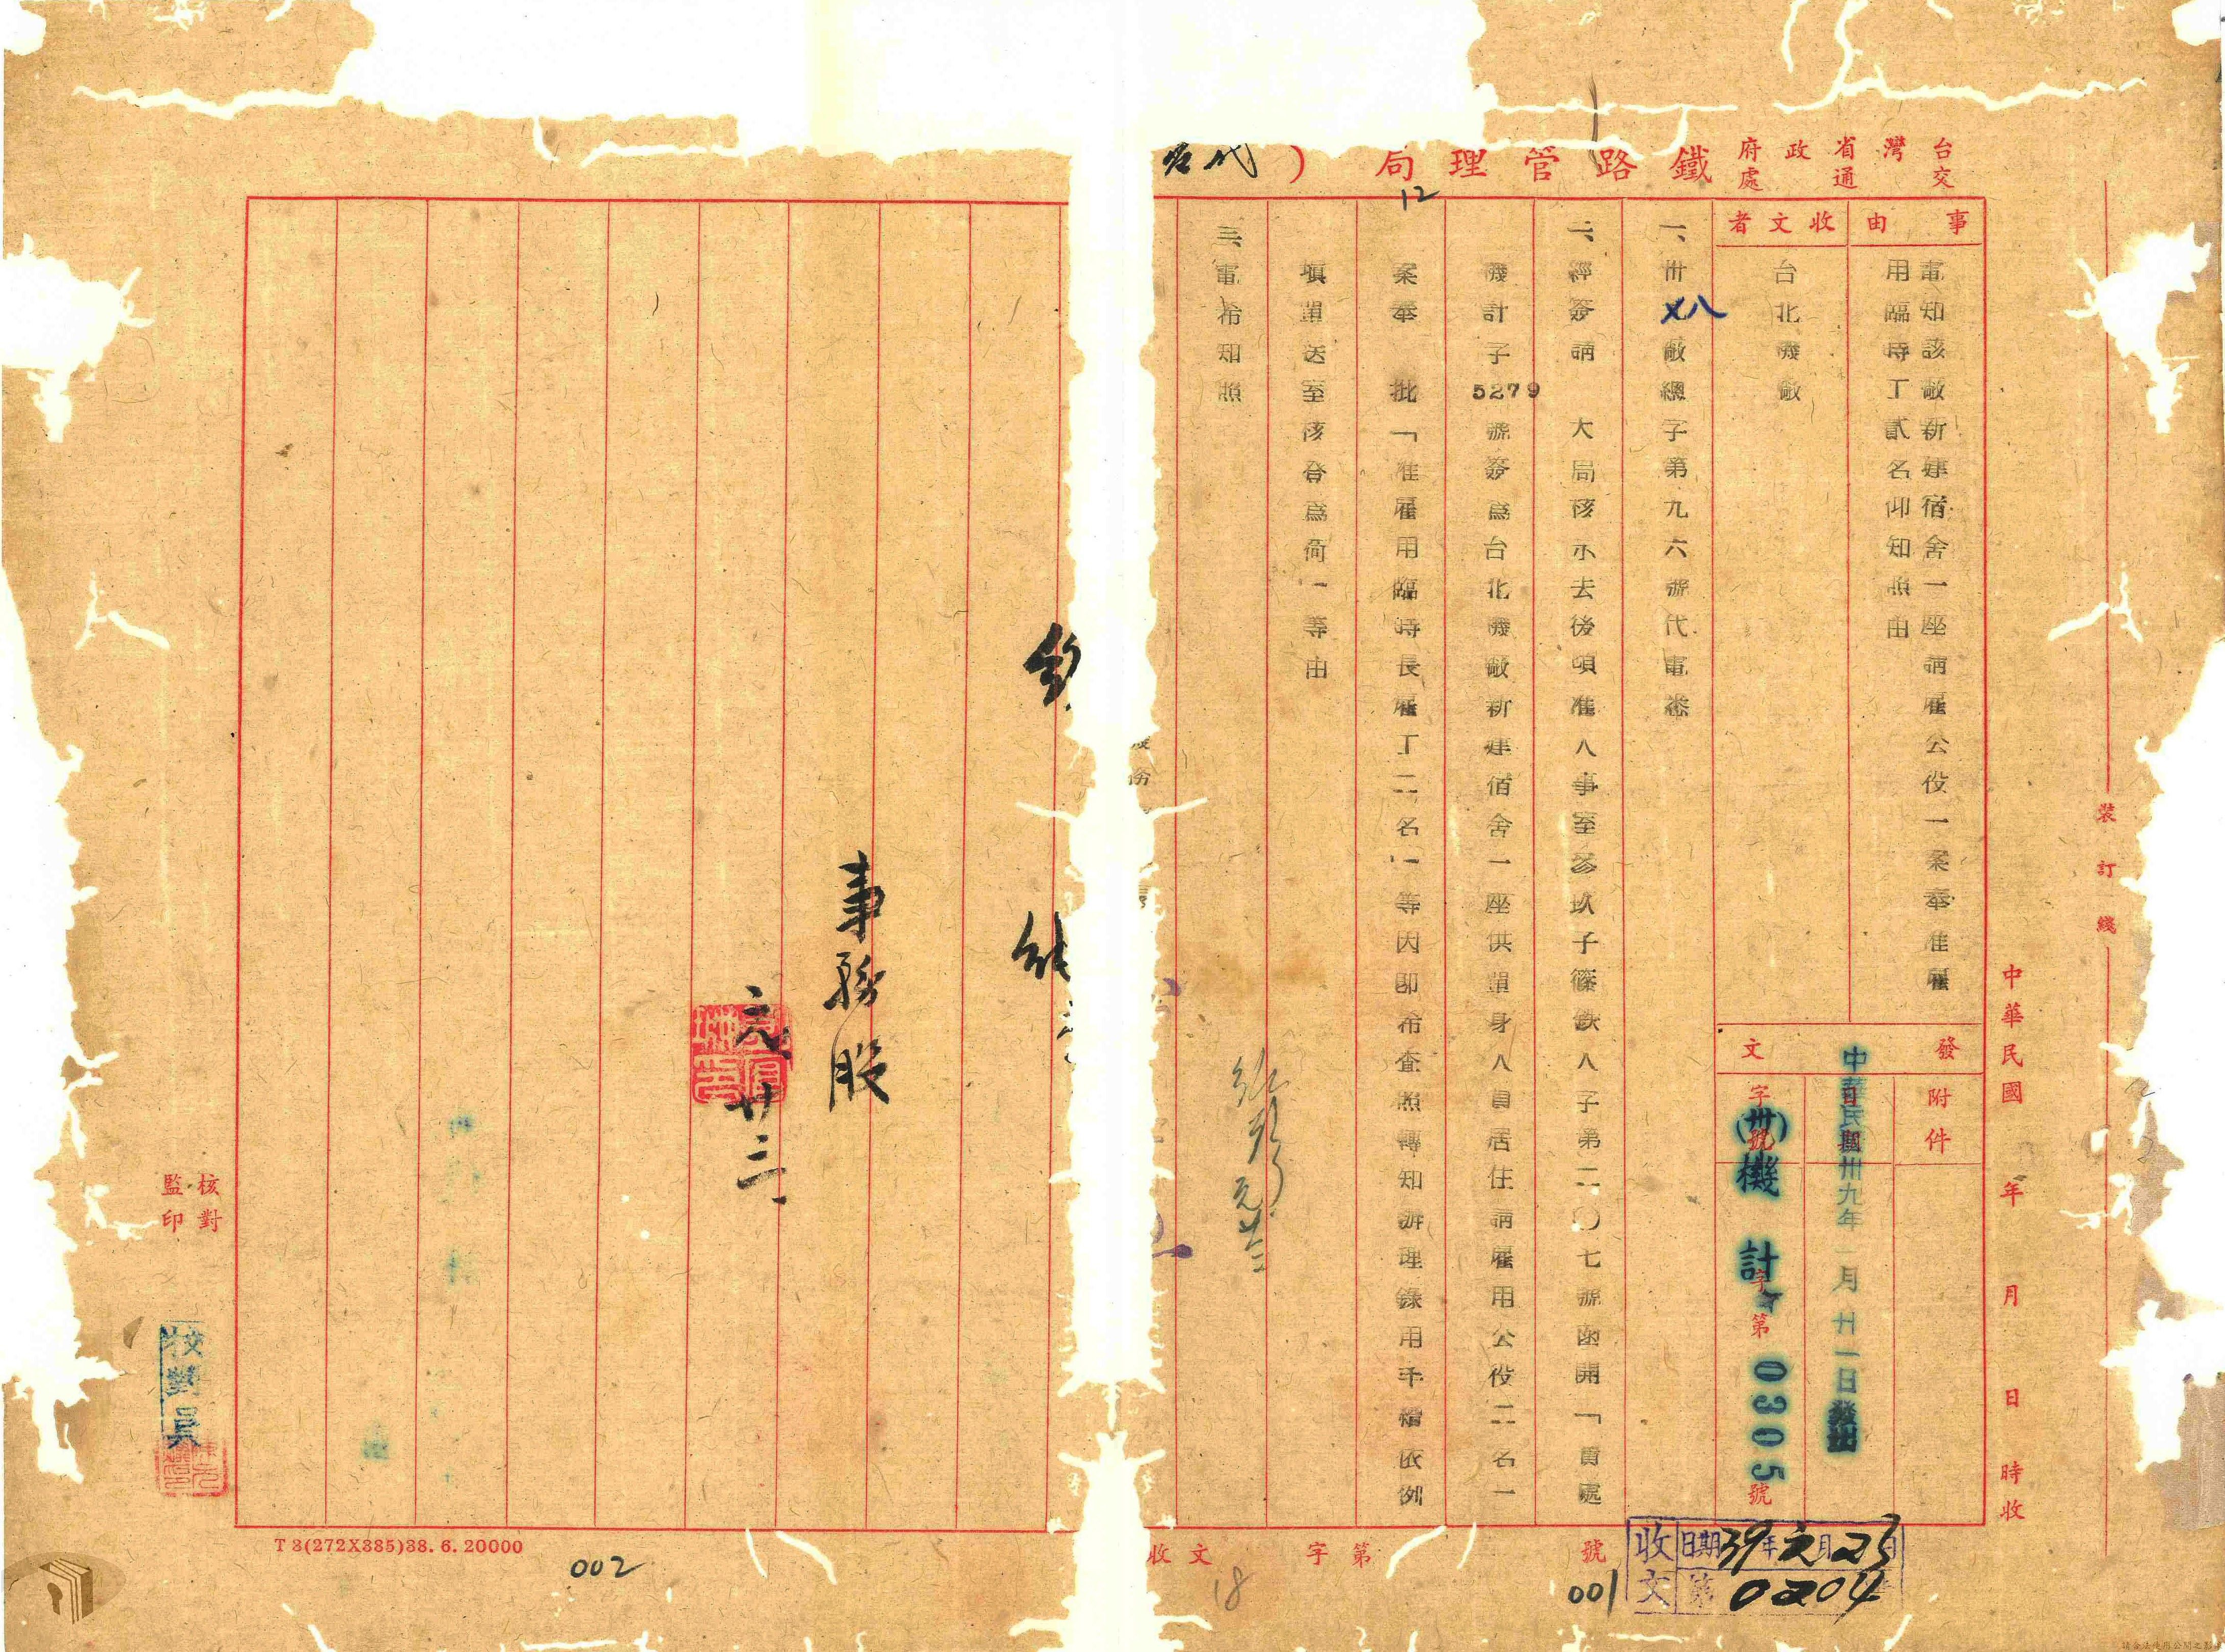 台灣省政府
交通處
鐵路管理局（
代
12
事由
電知該敞新建宿舍一座請雇公役一案奉准雇
用臨時工貳名仰知照由
收文者
台北機敞
發文
附件
日
中華民國卅九年一月廿一日發出
字號
(卅)機計字第0305號
一、卅八敞總字第九六號代電悉
二、經簽請 大局核示去後頃准人事室玖子篠鉄人子第二〇七號函開「貴處
機計子5279號簽為台北機敞新建宿舍一座供單身人員居住請雇用公役二名一
案奉 批「准雇用臨時長雇工二名」等因即希查照轉知辦理錄用手續依例
填單送室核登為荷」等由
三、電希知照
元廿三
事務股
元廿三
中華民國 年 月 日 時收
裝訂線
收文 字第 號
收文
日期39年元月23日
第0204
001
18
002
核對
監印
校對吳
T 3(272X385)38.6.20000